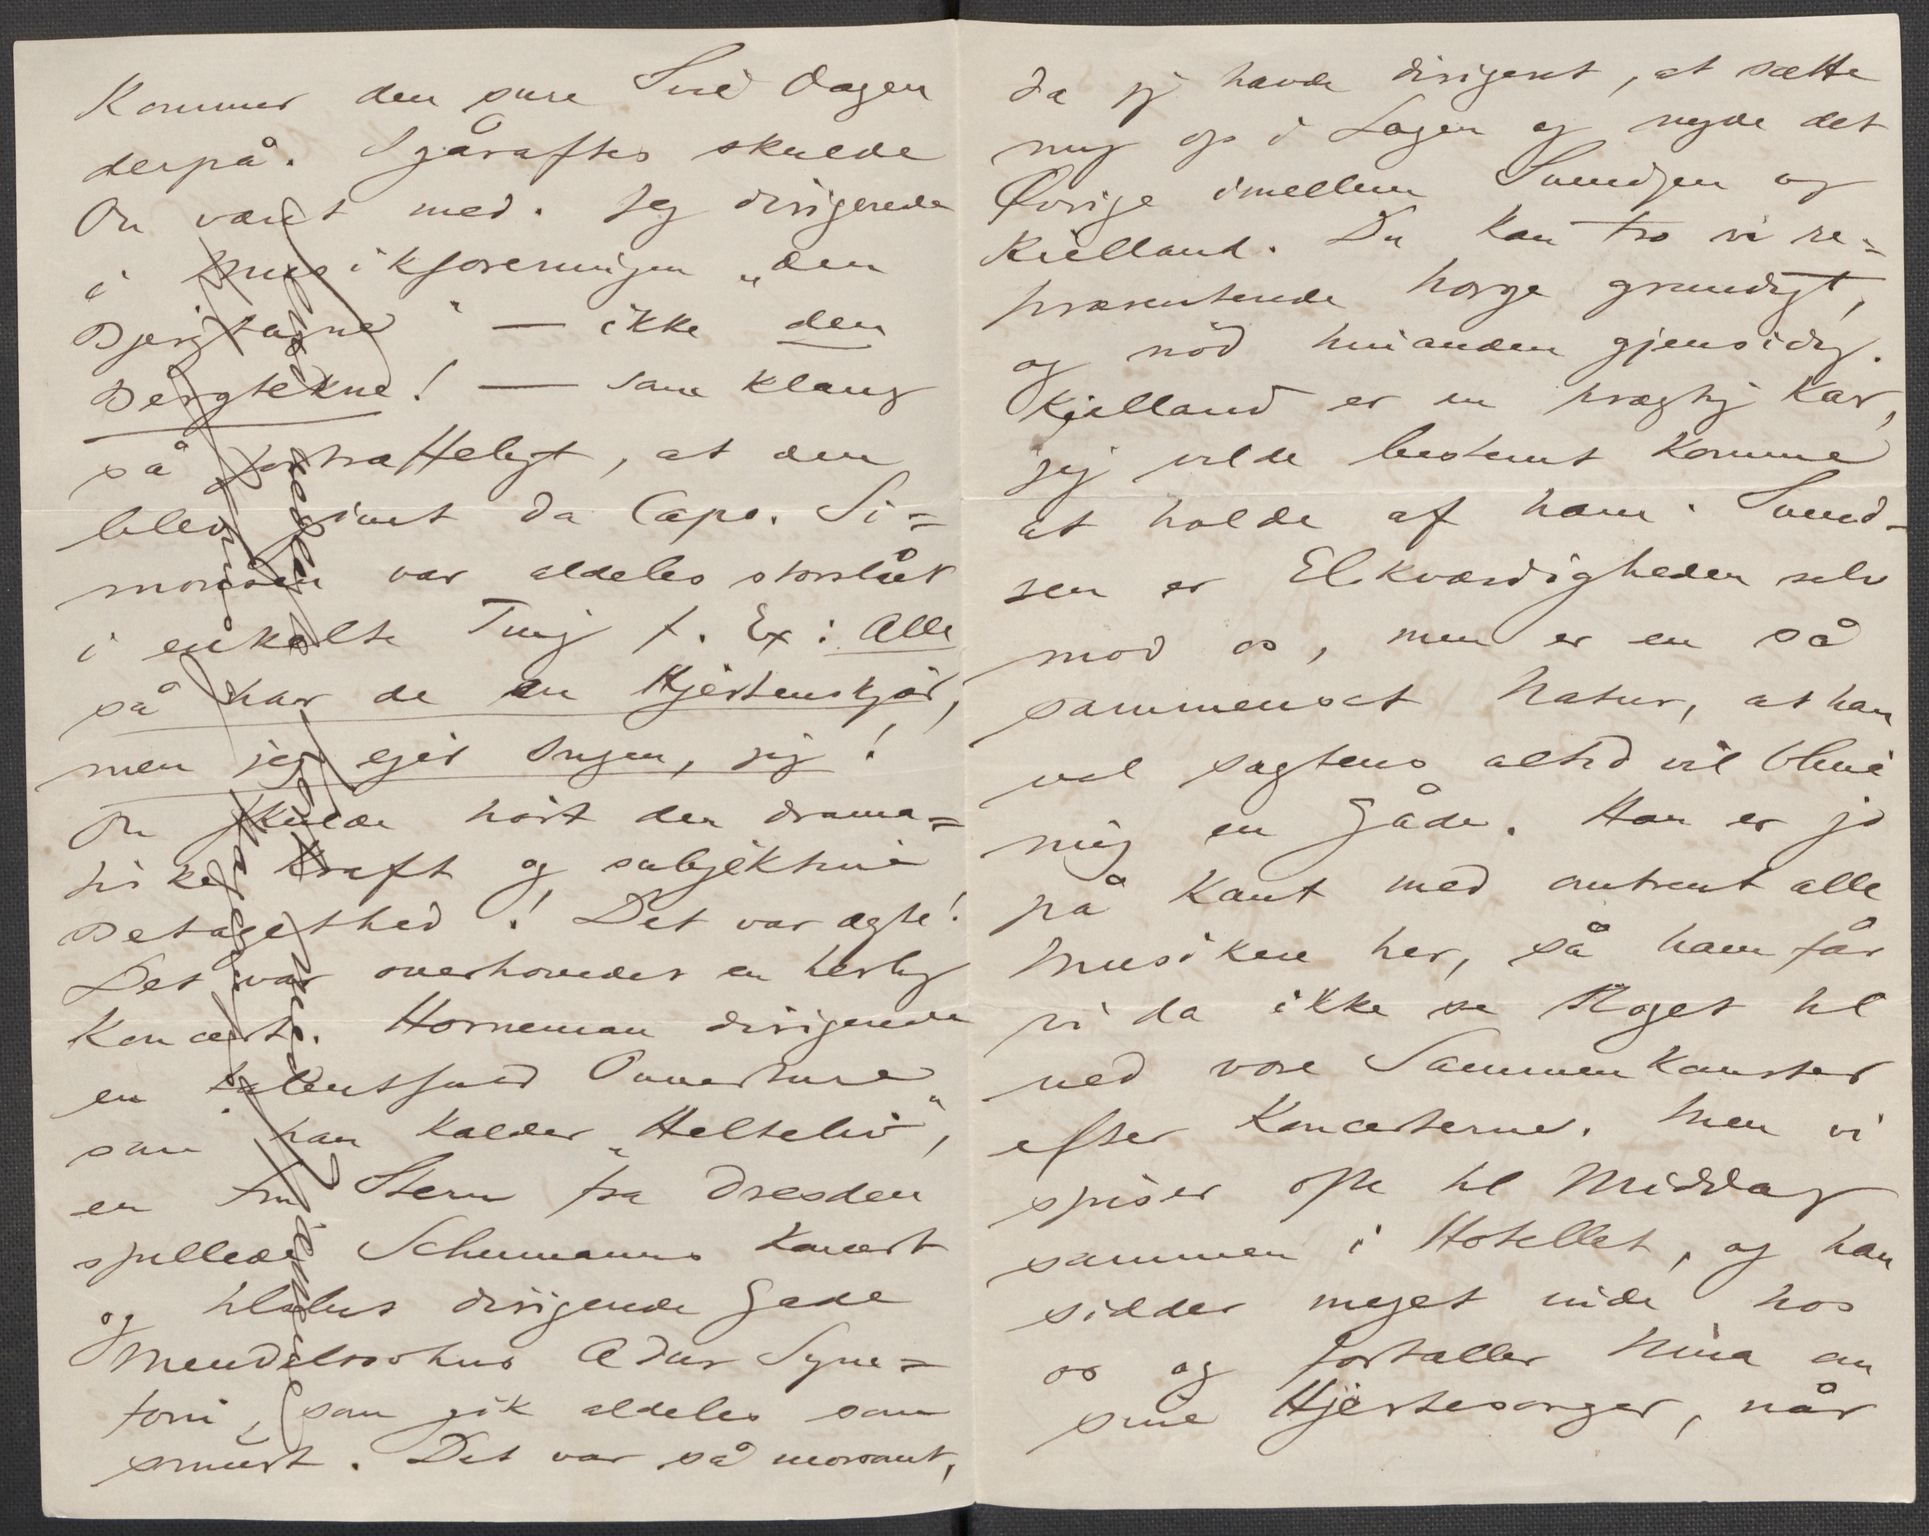 Kommer den sure Svie Dagen
derpå. Igåraftes skulde
Du været med. Jeg dirigerede
i Musikforeningen „den
Bjergtagne" — ikke den
Bergtekne! — som klang
så fortræffeligt, at den
blev givet da Capo. Si-
monsen var aldeles storslået
i enkelte Ting f. Ex: Alle
så har de en Hjertenskjær,
men jeg ejer Ingen, jeg!
Du skulde hørt den drama-
tiske Kraft og subjektive
Betagethed! Det var ægte!
Det var overhovedet en herlig
Koncert. Horneman dirigerede
en talentfuld Ouverture
som han kalder „Helteliv",
en Fru Stern fra Dresden
spillede Schumanns Koncert
og tilslut dirigerede Gade
Mendelssohns Adur Syn-
foni, som gik aldeles som
smurt. Det var så morsomt,
da jeg havde dirigeret, at sætte
mig op i Logen og nyde det
Øvrige imellem Svendsen og
Kielland. Du kan tro vi re-
præsenterede Norge grundigt,
og nød hinanden gjensidig.
Kielland er en prægtig Kar,
jeg vilde bestemt komme
at holde af ham. Svend-
sen er Elskværdigheden selv
mod os, men er en så
sammensat Natur, at han
vel sagtens altid vil blive
mig en Gåde. Han er jo
på Kant med omtrent alle
Musikere her, så ham får
vi da ikke se Noget til
ved vore Sammenkomster
efter Koncerterne. Men vi
spiser ofte til Middag
sammen i Hotellet, og han
sidder meget inde hos
os og fortæller Nina om
sine Hjertesorger, når